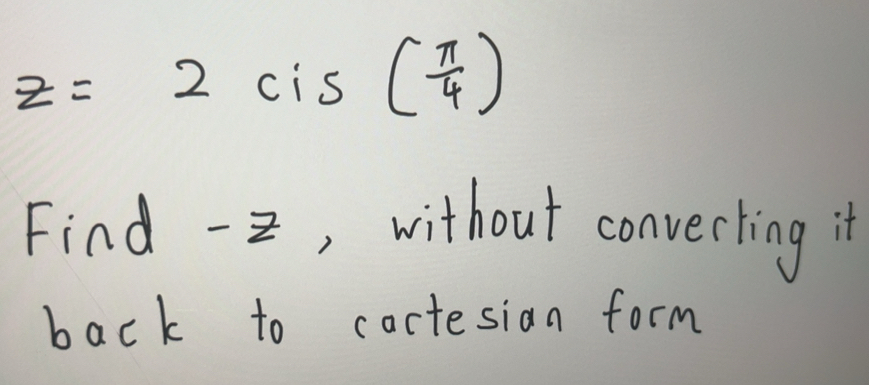 z = 2 cis (π/4)
Find -z, without converting it
back to cartesian form